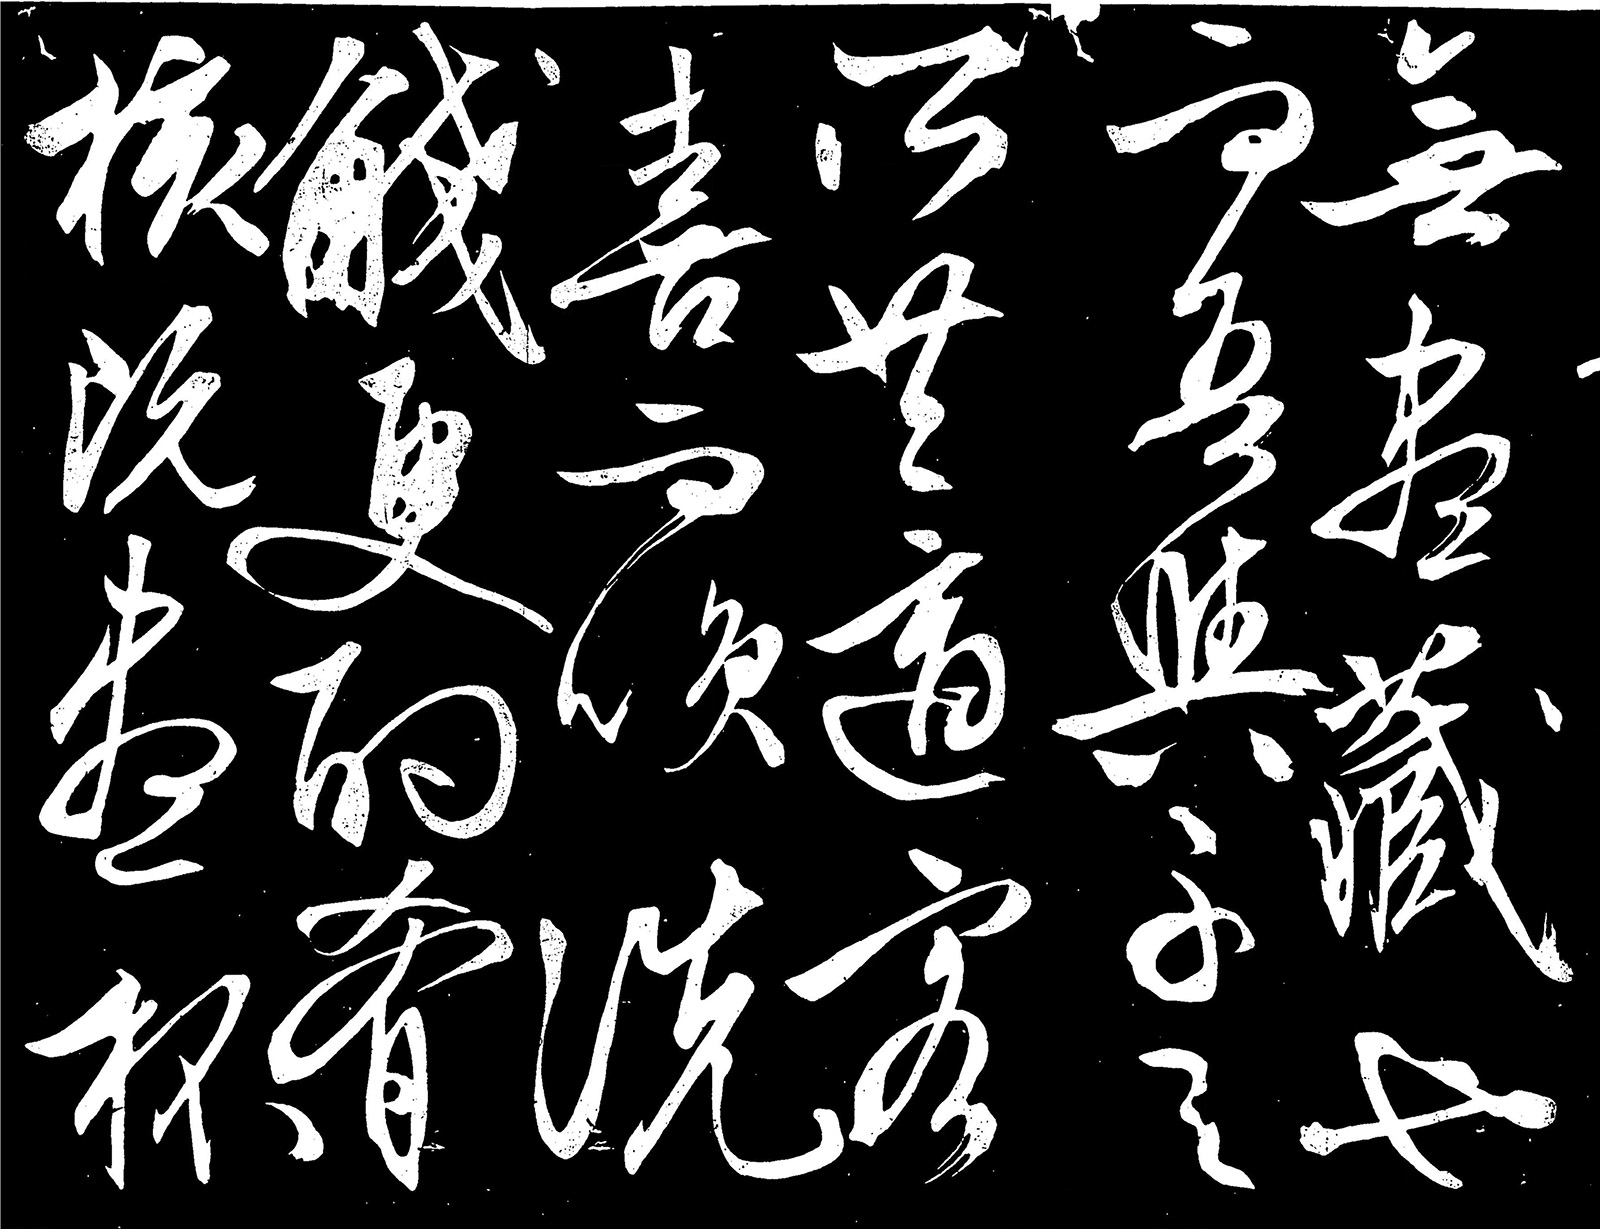 無盡藏也
而吾與子之
所共適客
喜而笑洗
盞更酌肴
核既盡杯